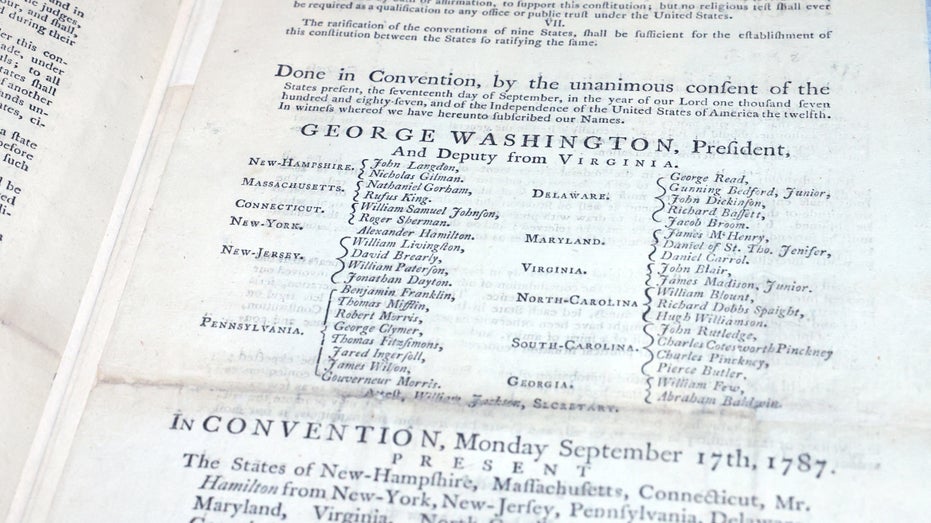 the Judges,
and ſhall,
during their
this con-
under
to all
ſhall
another
un-
ci-
a ſtate
before
ſuch
be
be required as a qualification to any office or public truſt under the United States.
VII.
The ratification of the conventions of nine States, ſhall be ſufficient for the eſtabliſhment of
this conſtitution between the States ſo ratifying the ſame.
Done in Convention, by the unanimous conſent of the
States preſent, the ſeventeenth day of September, in the year of our Lord one thouſand ſeven
hundred and eighty-ſeven, and of the Independence of the United States of America the twelfth.
In witneſs whereof we have hereunto ſubſcribed our Names.
GEORGE WASHINGTON, Preſident,
And Deputy from VIRGINIA.
NEW-HAMPSHIRE.
John Langdon,
Nicholas Gilman.
MASSACHUSETTS.
Nathaniel Gorham,
Rufus King.
CONNECTICUT.
William Samuel Johnſon,
Roger Sherman.
NEW-YORK.
Alexander Hamilton.
NEW-JERSEY.
William Livingſton,
David Brearly,
William Paterſon,
Jonathan Dayton.
PENNSYLVANIA.
Benjamin Franklin,
Thomas Mifflin,
Robert Morris,
George Clymer,
Thomas Fitzſimons,
Jared Ingerſoll,
James Wilſon,
Gouverneur Morris.
DELAWARE.
George Read,
Gunning Bedford, Junior,
John Dickinſon,
Richard Baſſett,
Jacob Broom.
MARYLAND.
James M'Henry,
Daniel of St. Tho. Jenifer,
Daniel Carrol.
VIRGINIA.
John Blair,
James Madiſon, Junior.
NORTH-CAROLINA
William Blount,
Richard Dobbs Spaight,
Hugh Williamſon.
SOUTH-CAROLINA.
John Rutledge,
Charles Coteſworth Pinckney
Charles Pinckney,
Pierce Butler.
GEORGIA.
William Few,
Abraham Baldwin.
Atteſt, William Jackſon, SECRETARY.
IN CONVENTION, Monday September 17th, 1787.
PRESENT
The States of New-Hampſhire, Maſſachuſetts, Connecticut, Mr.
Hamilton from New-York, New-Jerſey, Pennſylvania, Delaware,
Maryland, Virginia, North